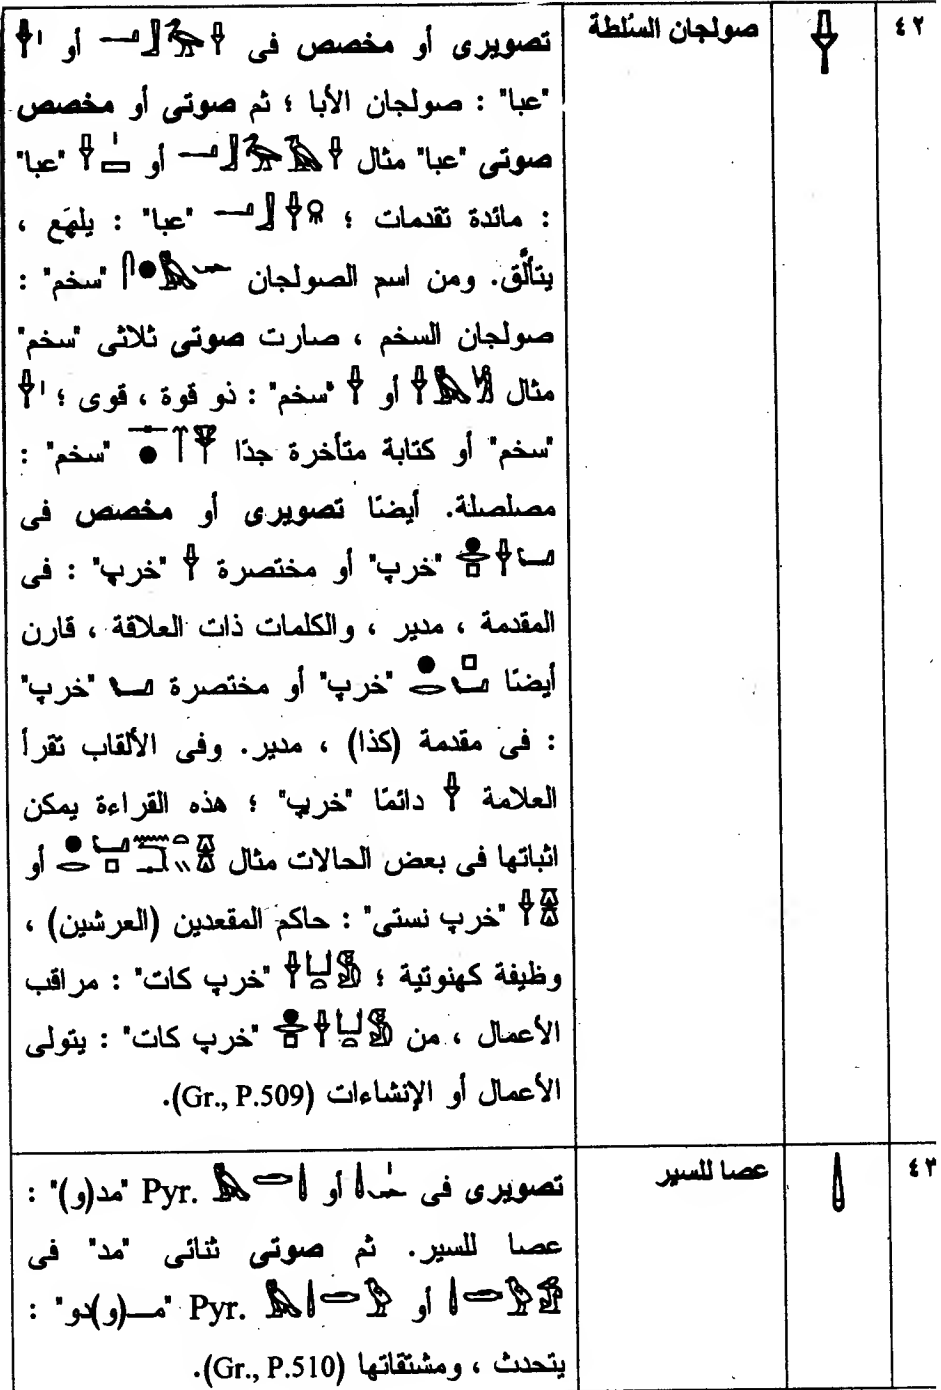 ٤٢ 𓌂 صولجان السُلطة تصويرى أو مخصص فى 𓂝𓃀𓅮𓌂 أو 𓌂𓏤
"عبا" : صولجان الأبا ؛ ثم صوتى أو مخصص
صوتى "عبا" مثال 𓂝𓃀𓅮𓄿𓌂 أو 𓌂𓏤𓈙 "عبا"
: مائدة تقدمات ؛ 𓂝𓃀𓌂𓇶 "عبا" : يلهَع ،
يتألَّق. ومن اسم الصولجان 𓋴𓐍𓅓𓆱 "سخم" :
صولجان السخم ، صارت صوتى ثلاثى "سخم"
مثال 𓌂𓅓𓀜 أو 𓌂 "سخم" : ذو قوة ، قوى ؛ 𓌂𓏤
"سخم" أو كتابة متأخرة جدًا "سخم" :
مصلصلة. أيضنًا تصويرى أو مخصص فى
𓐍𓂋𓊪𓌂𓂡 "خرپ" أو مختصرة 𓌂 "خرپ" : فى
المقدمة ، مدير ، والكلمات ذات العلاقة ، قارن
أيضنًا 𓐍𓂋𓊪𓂡 "خرپ" أو مختصرة 𓂡 "خرپ"
: فى مقدمة (كذا) ، مدير. وفى الألقاب تقرأ
العلامة 𓌂 دائمًا "خرپ" ؛ هذه القراءة يمكن
اثباتها فى بعض الحالات مثال أو
"خرپ نستى" : حاكم المقعدين (العرشين) ،
وظيفة كهنوتية ؛ 𓌂𓂓𓏏𓀋 "خرپ كات" : مراقب
الأعمال ، من 𓐍𓂋𓊪𓌂𓂓𓏏𓀋 "خرپ كات" : يتولى
الأعمال أو الإنشاءات (Gr., P.509).
٤٣ 𓌃 عصا للسير تصويرى فى 𓌃𓏤𓆱 أو 𓅓𓂧𓌃 Pyr. "مد(و)" :
عصا للسير. ثم صوتى ثنائى "مد" فى
𓌃𓂧𓅱𓀁 أو 𓅓𓌃𓂧𓅱 Pyr. "مـ(و)دو" :
يتحدث ، ومشتقاتها (Gr., P.510).